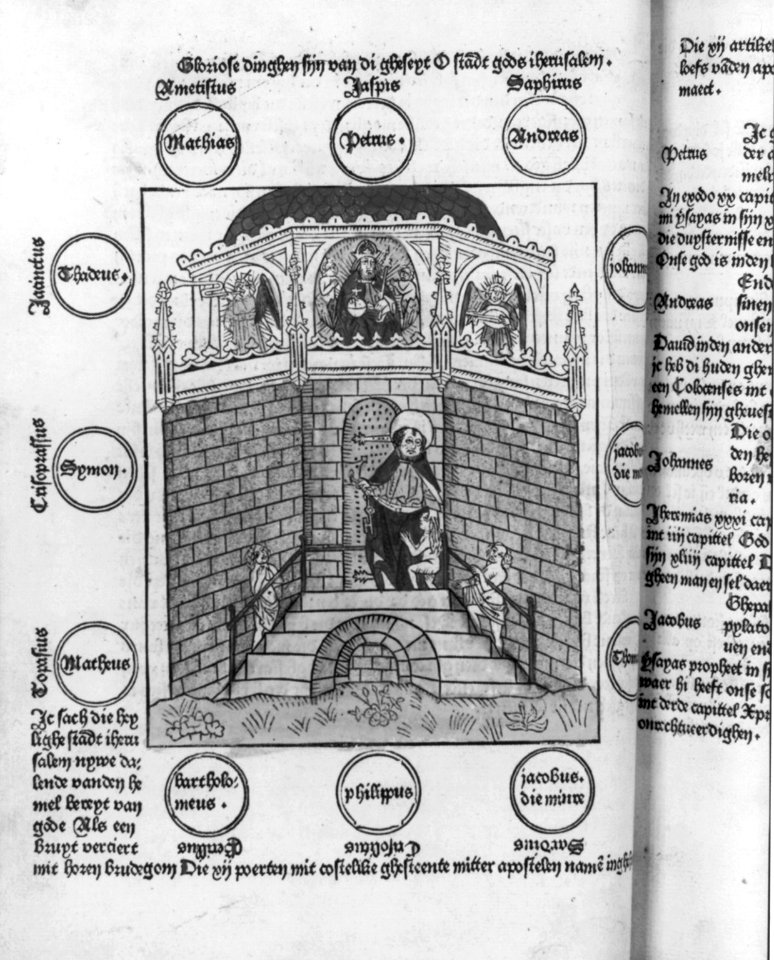 Gloriose dinghen sijn van di gheseyt O stadt gods iherusalem.
Ametistus
Jaspis
Saphirus
Mathias
Petrus.
Andreas
Jacinctus
Thadeus.
johann
Crisoprassus
Symon.
jacobus
die
Topasius
Matheus
Thom
Jc sach die hey
lighe stadt iheru
salem nywe da
lende vanden he
mel bereyt van
gode Als een
bruyt verciert
mit horen brudegom Die xij poerten mit costelike ghesteente mitter apostelen namē
bartholo
meus.
philippus
jacobus.
die minre
Berillus
Crisolitus
Sardius
Die xij artikel
loefs vāden apo
maect.
Jc g
Petrus
der a
In exodo xx capit
mi ysayas in sijn x
die duysternisse en
Onse god is inden
Andreas
sinen
onsen
Dauid inden ander
jc heb di huden ghe
een Colocenses int
hemelken sijn gheuest
Die o
Johannes
den he
boren
ria.
Jheremias xxxi cap
int iiij capittel God
sijn xliij capittel D
gheen man en sel daer
Ghepa
Jacobus
pylato
uen end
ysayas propheet in
waer hi heeft onse
int derde capittel Xp
onrechtueerdighen.